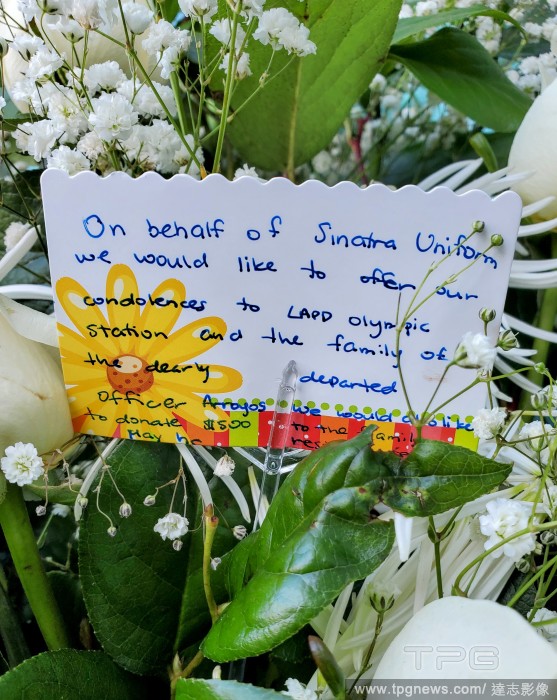 On behalf of Sinatra Uniform
we would like to offer our
condolences to LAPD olympic
Station and the family of
the dearly departed
Officer Arroyos we would also like
to donate $500 to the family
May he res
TPG
www.tpgnews.com/達志影像